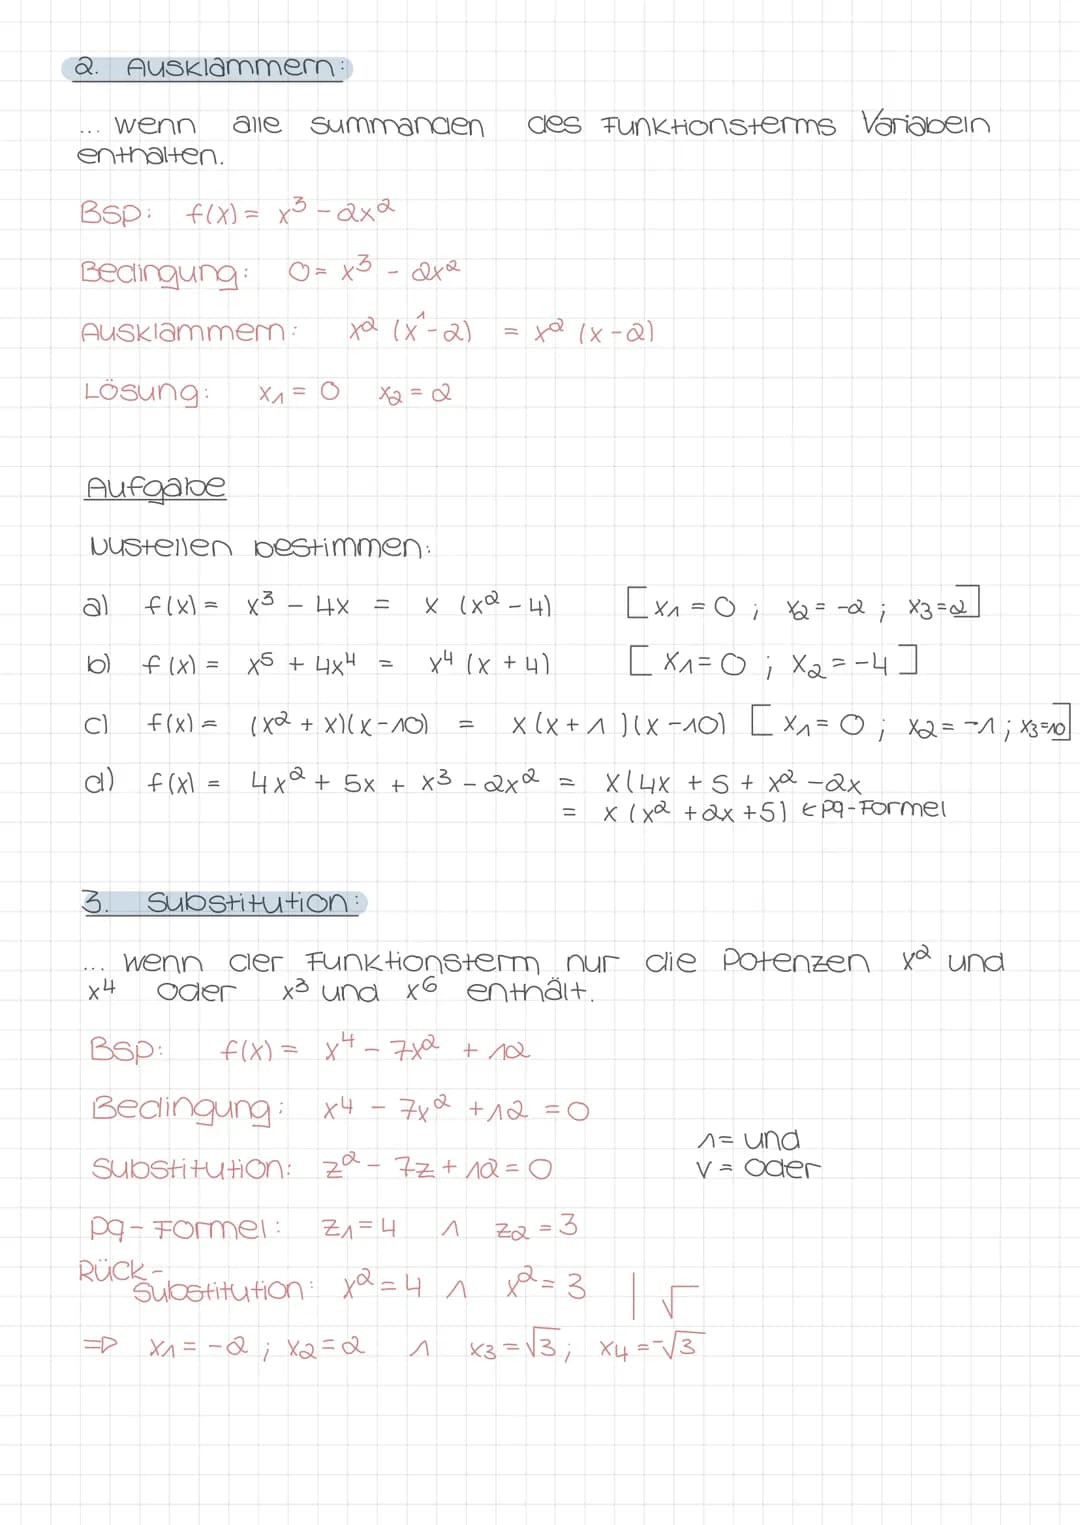 2. Ausklammern:
... wenn alle summanden des Funktionsterms Variabeln
enthalten.
Bsp: f(x) = x³ - 2x²
Bedingung: 0 = x³ - 2x²
Ausklammern: x² (x¹ - 2) = x² (x - 2)
Lösung: x₁ = 0 x₂ = 2
Aufgabe
Nustellen bestimmen:
a) f(x) = x³ - 4x = x (x² - 4) [x₁ = 0 ; x₂ = -2 ; x₃ = 2]
b) f(x) = x⁵ + 4x⁴ = x⁴ (x + 4) [x₁ = 0 ; x₂ = -4]
c) f(x) = (x² + x)(x - 10) = x (x + 1)(x - 10) [x₁ = 0 ; x₂ = -1 ; x₃ = 10]
d) f(x) = 4x² + 5x + x³ - 2x² = x(4x + 5 + x² - 2x
= x (x² + 2x + 5) ← pq-Formel
3. Substitution:
... wenn der Funktionsterm nur die Potenzen x² und
x⁴ oder x³ und x⁶ enthält.
Bsp: f(x) = x⁴ - 7x² + 12
Bedingung: x⁴ - 7x² + 12 = 0
∧ = und
Substitution: z² - 7z + 12 = 0
∨ = oder
pq-Formel: z₁ = 4 ∧ z₂ = 3
Rück-
substitution: x² = 4 ∧ x² = 3 | √
⇒ x₁ = -2 ; x₂ = 2 ∧ x₃ = √3 ; x₄ = -√3